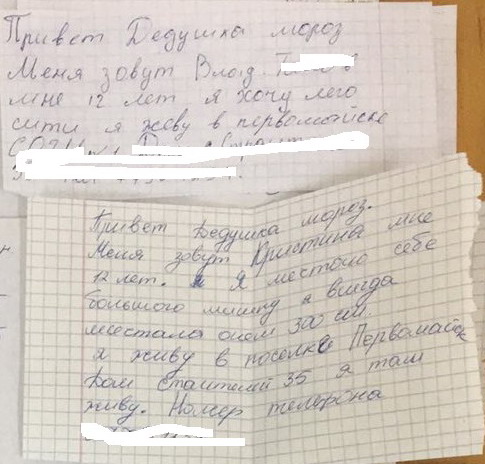 Привет Дедушка мороз
Меня зовут Влад.
мне 12 лет я хочу лего
сити я живу в первомайске
Привет Дедушка мороз.
Меня зовут Кристина мне
12 лет. Я местаю себе
большого мишку я всигда
меестала о нем 300 см.
я живу в поселке Первомайск
Дом Стаителей 35 я там
живу. Номер телефона